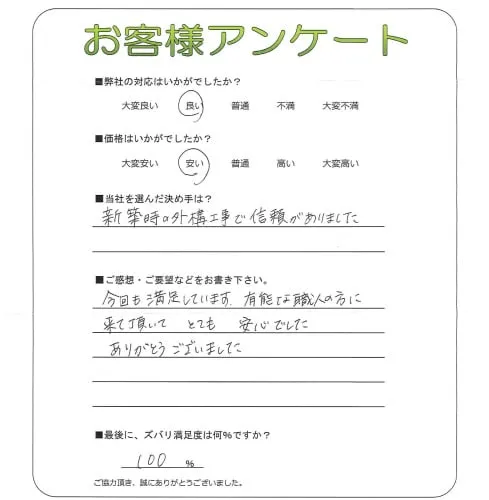 お客様アンケート
■弊社の対応はいかがでしたか？
大変良い 良い 普通 不満 大変不満
■価格はいかがでしたか？
大変安い 安い 普通 高い 大変高い
■当社を選んだ決め手は？
新築時の外構工事で信頼がありました
■ご感想・ご要望などをお書き下さい。
今回も満足しています。有能な職人の方に
来て頂いて とても 安心でした
ありがとうございました
■最後に、ズバリ満足度は何％ですか？
100 ％
ご協力頂き、誠にありがとうございました。